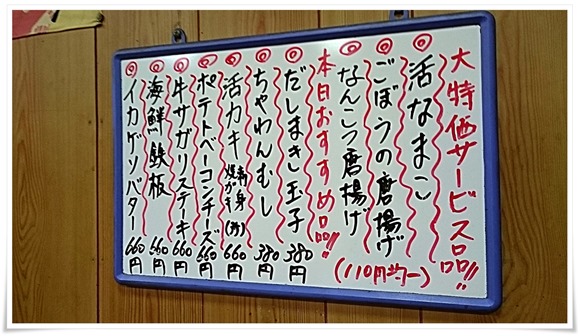 大特価サービス品!!
◎活なまこ
◎ごぼうの唐揚げ
◎なんこつ唐揚げ
(110円均一)
本日おすすめ品!!
◎だしまき玉子 380円
◎ちゃわんむし 380円
◎活カキ 660円
◎ポテトベーコンチーズ 660円
◎牛サガリステーキ 660円
◎海鮮鉄板 660円
◎イカゲソバター 660円